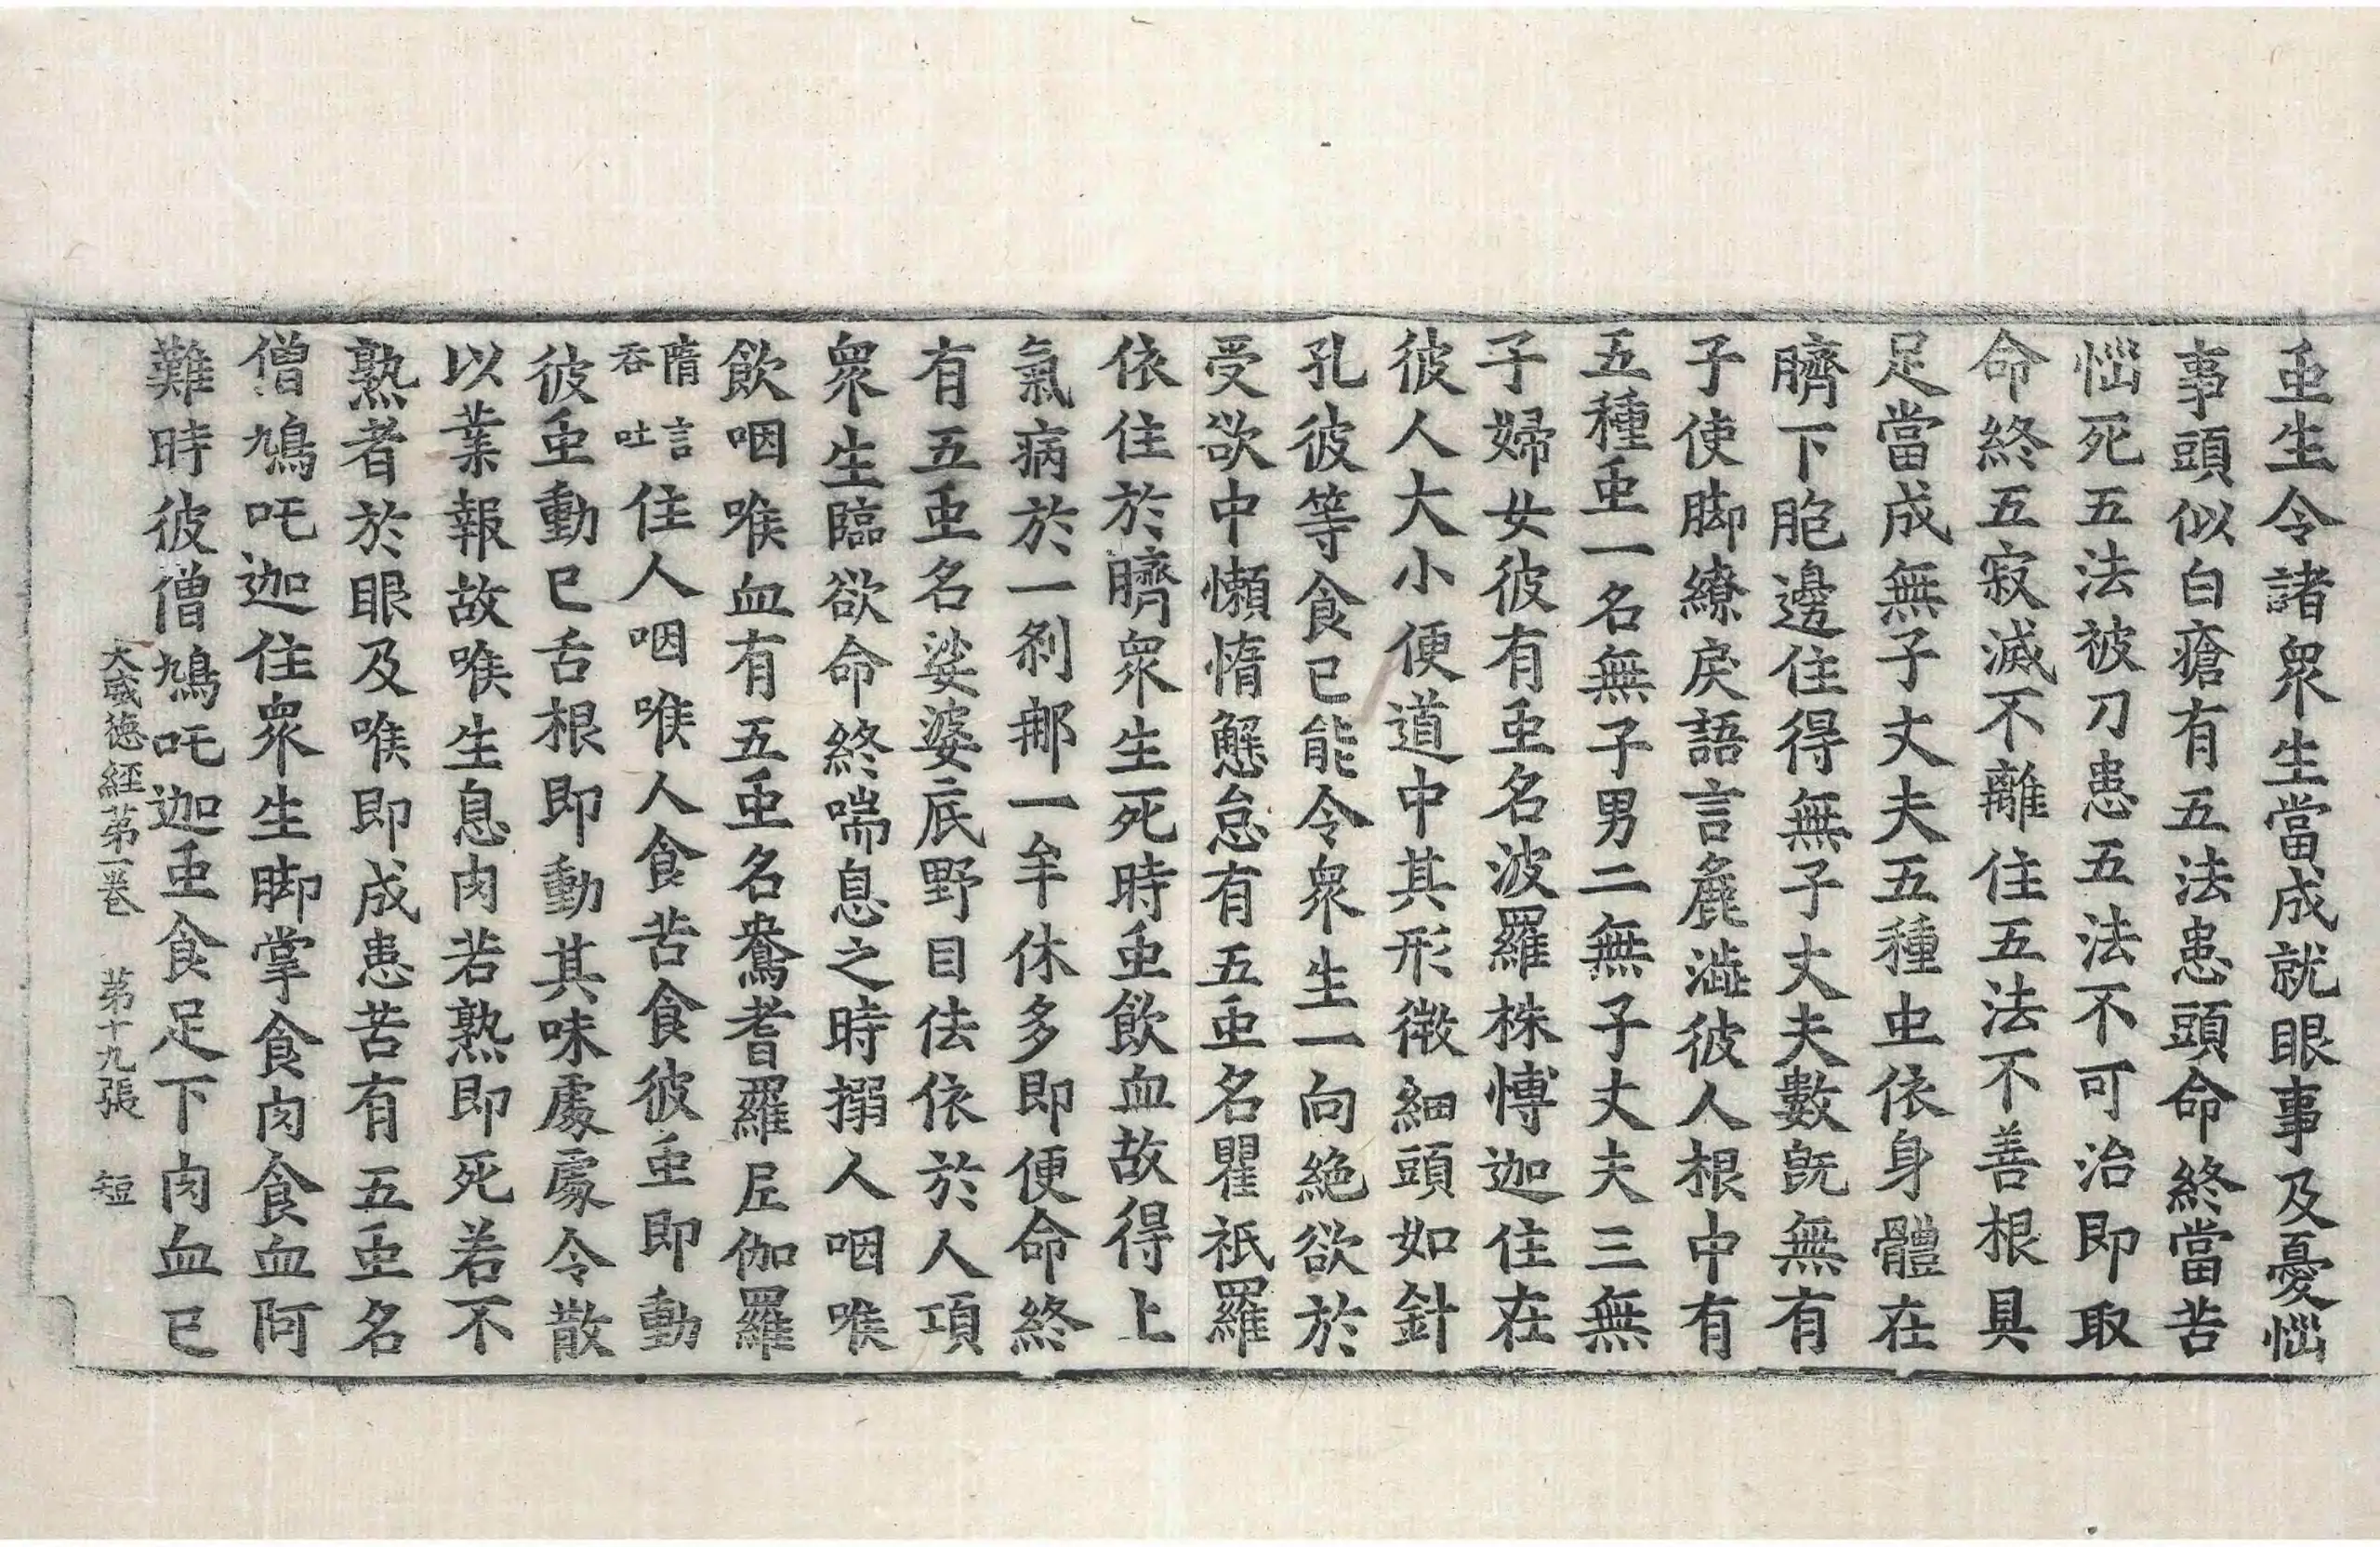 䖝生令諸衆生當成就眼事及憂惱
事頭似白瘡有五法患頭命終當苦
惱死五法被刀患五法不可治即取
命終五寂滅不離住五法不善根具
足當成無子丈夫五種虫依身體在
臍下胞邊住得無子丈夫數旣無有
子使脚繚戾語言麁澁彼人根中有
五種䖝一名無子男二無子丈夫三無
子婦女彼有䖝名波羅株愽迦住在
彼人大小便道中其形微細頭如針
孔彼等食已能令衆生一向絶欲於
受欲中懶惰懈怠有五䖝名瞿祇羅
依住於臍衆生死時䖝飲血故得上
氣病於一剎那一牟休多即便命終
有五䖝名娑婆底野目佉依於人項
衆生臨欲命終喘息之時搦人咽喉
飲咽喉血有五䖝名鴦耆羅𡰱伽羅
隋言吞吐住人咽喉人食苦食彼䖝即動
彼䖝動已舌根即動其味處處令散
以業報故喉生息肉若熟即死若不
熟者於眼及喉即成患苦有五䖝名
僧鳩吒迦住衆生脚掌食肉食血阿
難時彼僧鳩吒迦䖝食足下肉血已
大威德經第一卷 第十九張 短